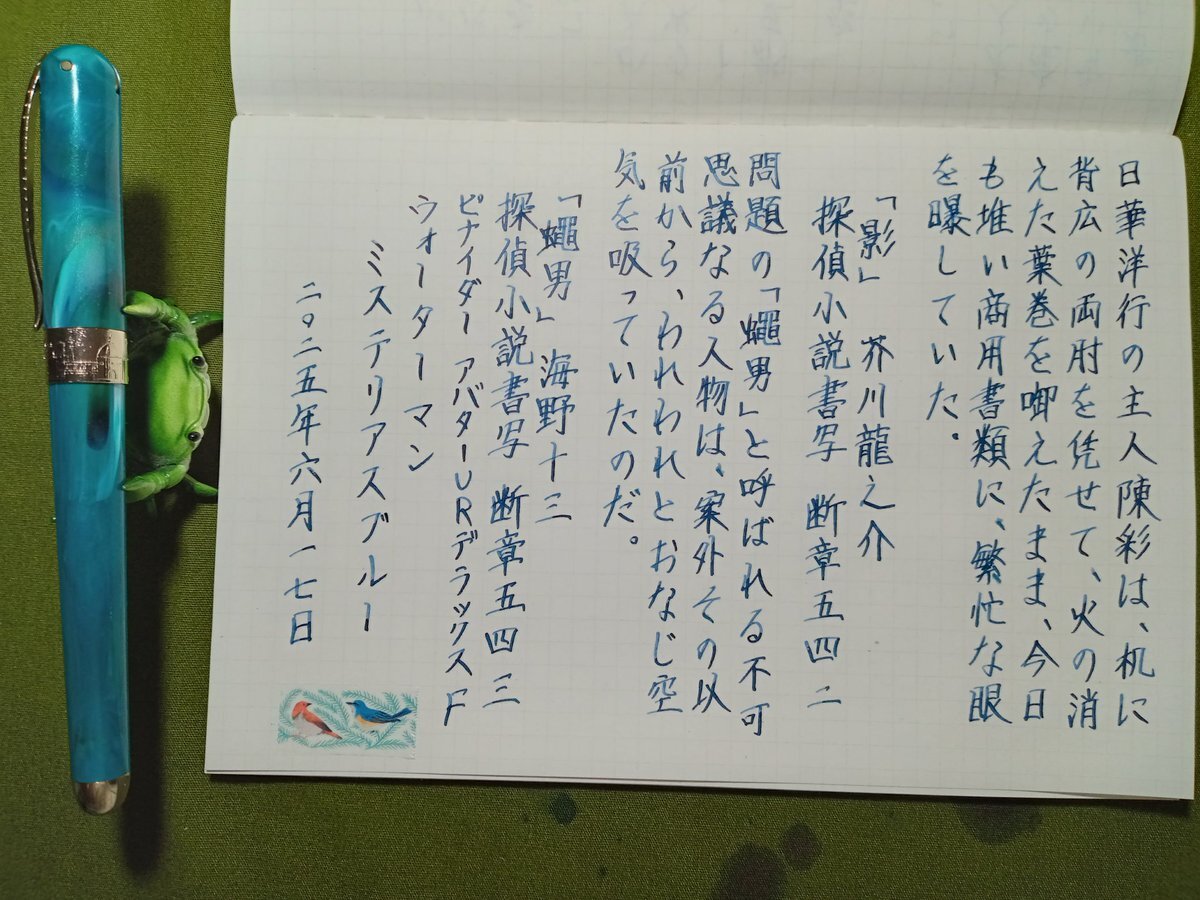 日華洋行の主人陳彩は、机に
背広の両肘を凭せて、火の消
えた葉巻を啣えたまま、今日
も堆い商用書類に、繁忙な眼
を曝していた。
「影」 芥川龍之介
探偵小説書写 断章五四二
問題の「蠅男」と呼ばれる不可
思議なる人物は、案外その以
前から、われわれとおなじ空
気を吸っていたのだ。
「蠅男」 海野十三
探偵小説書写 断章五四三
ピナイダー アバターURデラックスF
ウォーターマン
ミステリアスブルー
二〇二五年六月一七日